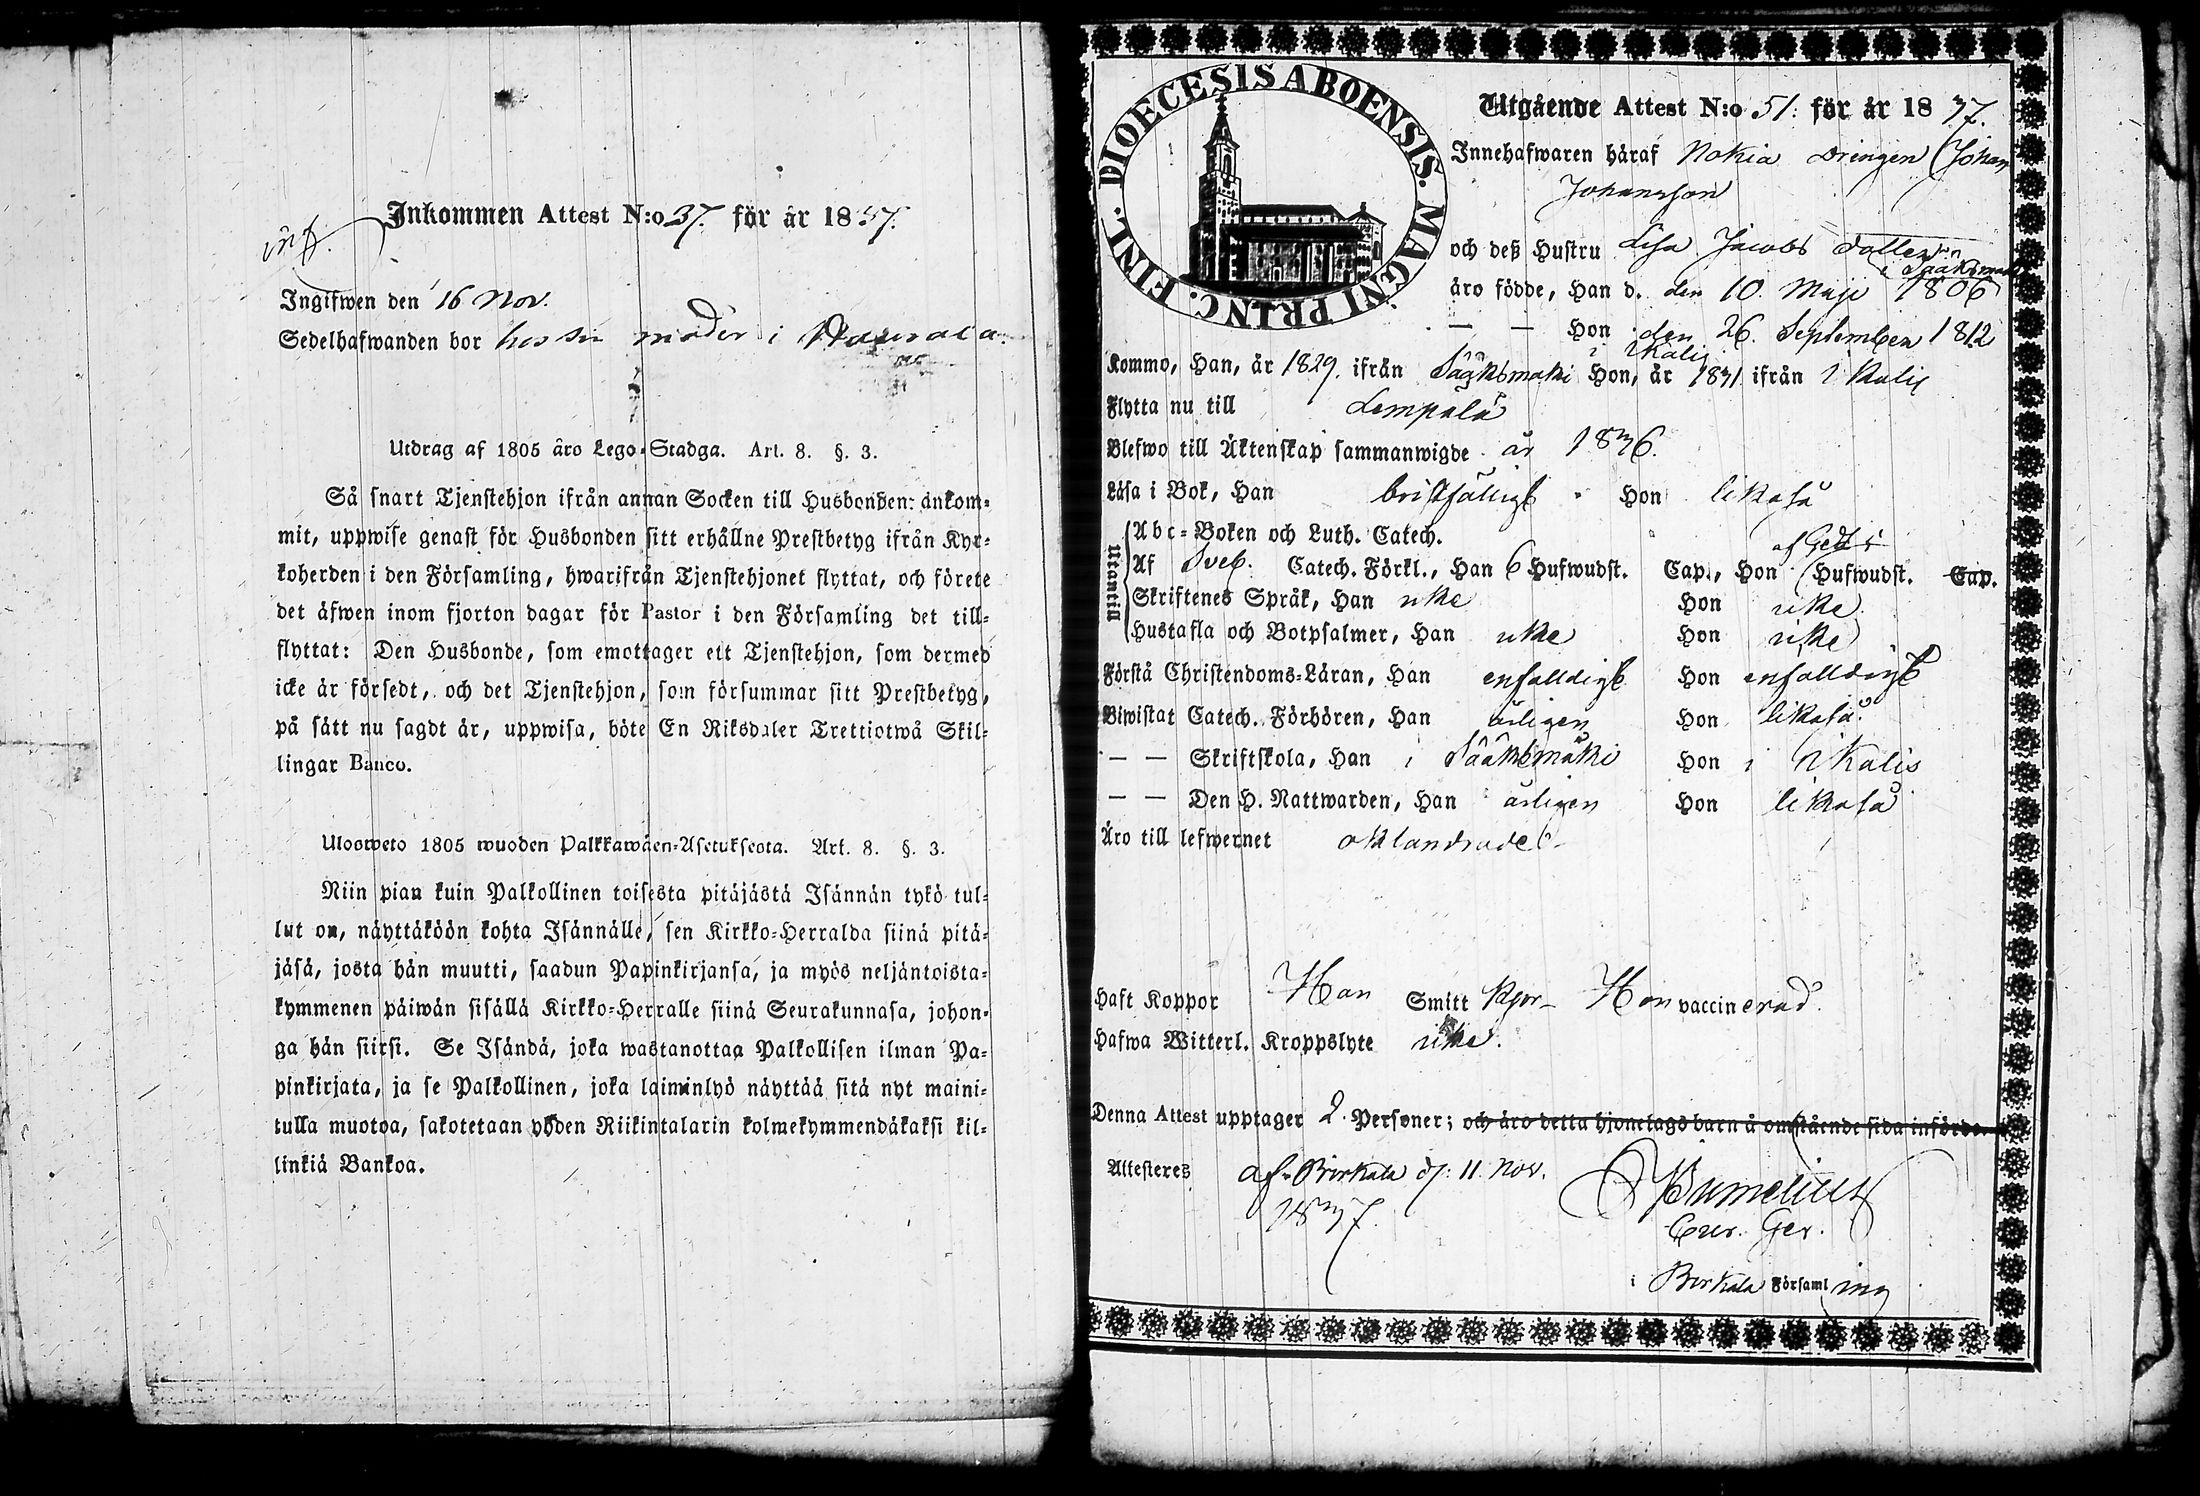 Inkommen Attest N:o 37. för år 1837.
inf.
Ingifwen den 16 Nov.
Sedelhafwanden bor hos sin moder i
Utdrag af 1805 års Lego-Stadga. Art. 8. §. 3.
Så snart Tjenstehjon ifrån annan Socken till Husbonden ankom-
mit, uppwise genast för Husbonden sitt erhållne Prestbetyg ifrån Kyr-
koherden i den Församling, hwarifrån Tjenstehjonet flyttat, och förete
det äfwen inom fjorton dagar för Pastor i den Församling det till-
flyttat: Den Husbonde, som emottager ett Tjenstehjon, som dermed
icke är försedt, och det Tjenstehjon, som försummar sitt Prestbetyg,
på sätt nu sagdt är, uppwisa, böte En Riksdaler Trettiotwå Skil-
lingar Banco.
Ulosweto 1805 wuoden Palkkawäen-Asetuksesta. Art. 8. §. 3.
Niin pian kuin Palkollinen toisesta pitäjästä Isännän tykö tul-
lut on, näyttäköön kohta Isännälle, sen Kirkko-Herralda siinä pitä-
jäsä, josta hän muutti, saadun Papinkirjansa, ja myös neljäntoista-
kymmenen päiwän sisällä Kirkko-Herralle siinä Seurakunnasa, johon-
ga hän siirsi. Se Isändä, joka wastanottaa Palkollisen ilman Pa-
pinkirjata, ja se Palkollinen, joka laiminlyö näyttää sitä nyt maini-
tulla muotoa, sakotetaan yhden Riikintalarin kolmekymmendäkaksi kil-
linkiä Bankoa.
DIOECESIS ABOENSIS. MAGNI PRINC. FINL.
Utgående Attest N:o 51. för år 1837.
Innehafwaren häraf Nokia Drengen Johan
Johansson
och deß Hustru Lisa Jacobs Dotter
i Sääksmäki
äro födde, Han d. den 10. Maji 1806
— — Hon den 26. September 1812
i Ikalis
Kommo, Han, år 1829. ifrån Sääksmäki Hon, år 1831 ifrån Ikalis
Flytta nu till Lempälä
Blefwo till Äktenskap sammanwigde år 1836.
Läsa i Bok, Han bristfälligt Hon likaså
Utantill
Abc-Boken och Luth. Catech.
Af Sveb. Catech. Förkl., Han 6 Hufwudst. Cap., Hon Hufwudst. Cap.
Skriftenes Språk, Han icke Hon icke
Hustafla och Botpsalmer, Han icke Hon icke
Förstå Christendoms-Läran, Han enfalldigt Hon enfalldigt
Biwistat Catech. Förhören, Han årligen Hon likaså
— — Skriftskola, Han i Sääksmäki Hon i Ikalis
— — Den H. Nattwarden, Han årligen Hon likaså
Äro till lefwernet oklandrade
Haft Koppor Han Smitt Kpr- Hon vaccinerad.
Hafwa Witterl. Kroppslyte icke.
Denna Attest upptager 2. Personer; och äro detta hjonelags barn å omstående sida införde
Attesteres af Birkala d: 11. Nov.
1837.
Cur. Ger.
i Birkala Församling